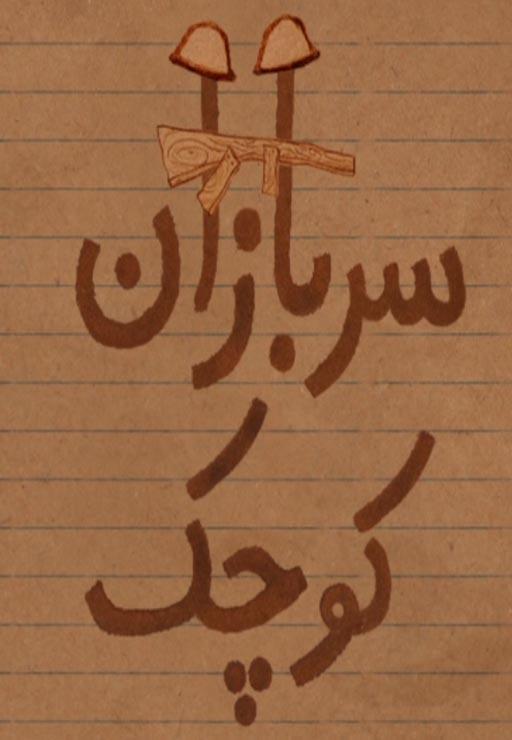 سربازان
کوچک